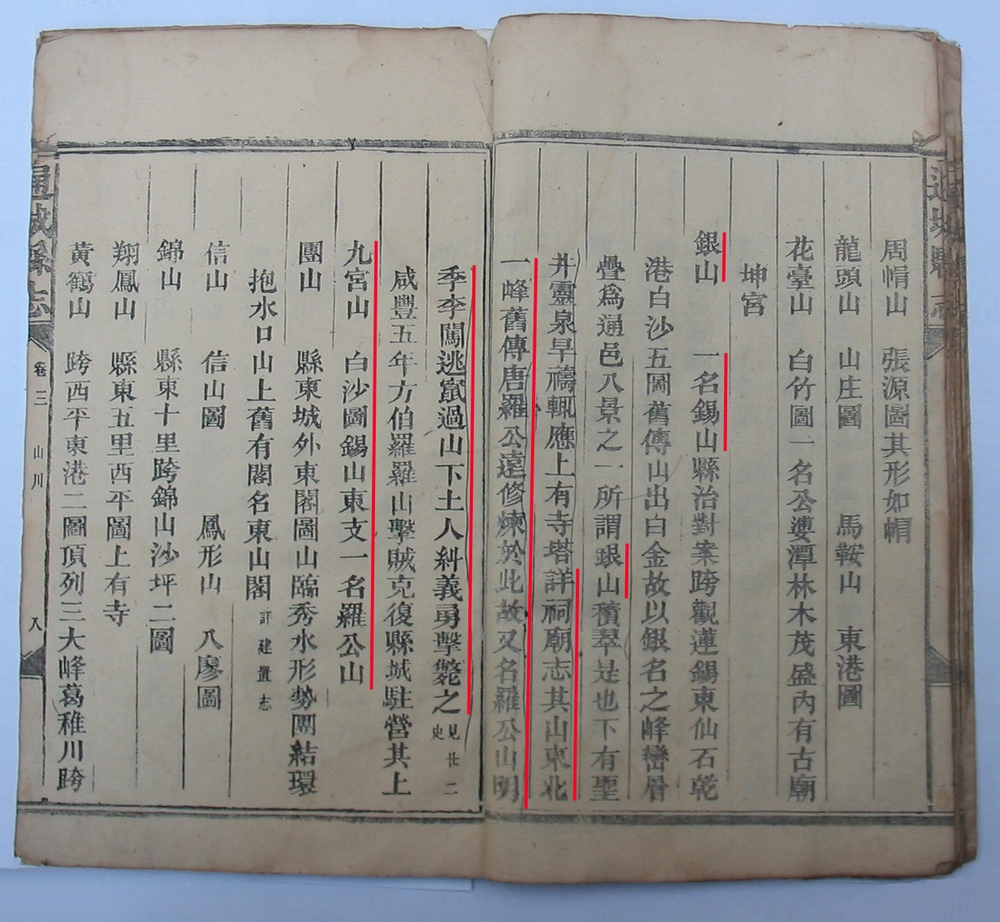 周㡌山　張源圖其形如㡌
龍頭山　山庄圖　馬鞍山　東港圖
花臺山　白竹圖一名公婆潭林木茂盛內有古廟
坤宮
銀山　一名錫山縣治對案跨觀蓮錫東仙石乾
港白沙五圖舊傳山出白金故以銀名之峰巒層
疊為通邑八景之一所謂銀山積翠是也下有聖
井靈泉旱禱輒應上有寺塔詳祠廟志其山東北
一峰舊傳唐羅公遠修煉於此故又名羅公山明
季李闖逃竄過山下土人糾義勇擊斃之見廿二史
咸豐五年方伯羅羅山擊賊克復縣城駐營其上
九宮山　白沙圖錫山東支一名羅公山
團山　縣東城外東閣圖山臨秀水形勢團結環
抱水口山上舊有閣名東山閣詳建置志
信山　信山圖　鳳形山　八廖圖
錦山　縣東十里跨錦山沙坪二圖
翔鳳山　縣東五里西平圖上有寺
黃鶴山　跨西平東港二圖頂列三大峰葛稚川跨
通城縣志　卷三　山川　八